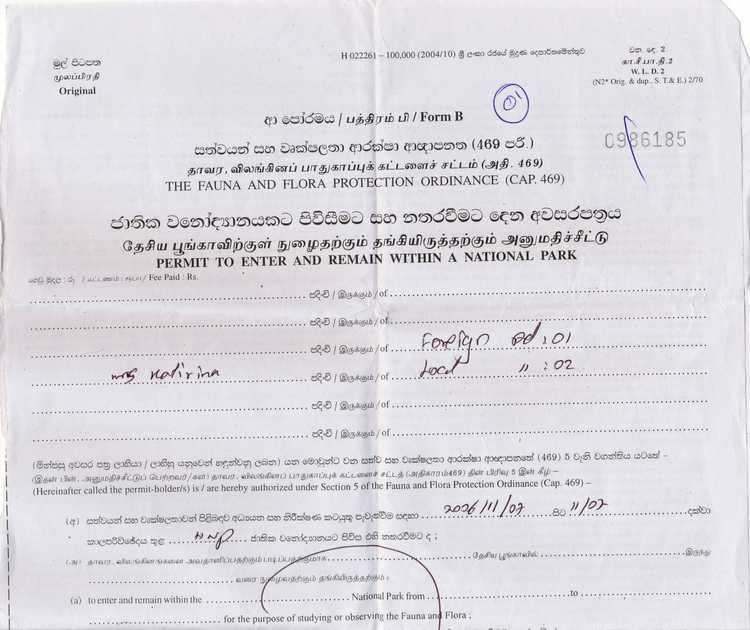 මුල් පිටපත
மூலப்பிரதி
Original
H 022261 – 100,000 (2004/10) ශ්‍රී ලංකා රජයේ මුද්‍රණ දෙපාර්තමේන්තුව
වන. දෙ. 2
கா.சீ.பா.தி.2
W. L. D. 2
(N2* Orig. & dup., S. T.& E.) 2/70
ආ පෝරමය / பத்திரம் பி / Form B
01
0986185
සත්වයන් සහ වෘක්ෂලතා ආරක්ෂා ආඥාපනත (469 පරි.)
தாவர, விலங்கினப் பாதுகாப்புக் கட்டளைச் சட்டம் (அதி. 469)
THE FAUNA AND FLORA PROTECTION ORDINANCE (CAP. 469)
ජාතික වනෝද්‍යානයකට පිවිසීමට සහ නතරවීමට දෙන අවසරපත්‍රය
தேசிய பூங்காவிற்குள் நுழைதற்கும் தங்கியிருத்தற்கும் அனுமதிச்சீட்டு
PERMIT TO ENTER AND REMAIN WITHIN A NATIONAL PARK
ගෙවූ මුදල : රු. / கட்டணம் : ரூபா / Fee Paid : Rs.
පදිංචි / இருக்கும் / of
පදිංචි / இருக்கும் / of
පදිංචි / இருக்கும் / of Foreign ad : 01
mrs Katirina පදිංචි / இருக்கும் / of Local " : 02
පදිංචි / இருக்கும் / of
පදිංචි / இருக்கும் / of
(මින්පසු අවසර පත්‍ර ලාභියා / ලාභීහු යනුවෙන් හඳුන්වනු ලබන) යන මොවුන්ට වන සත්ව සහ වෘක්ෂලතා ආරක්ෂා ආඥාපනතේ (469) 5 වැනි වගන්තිය යටතේ –
(இதன் பின், அனுமதிச்சீட்டுப் பெற்றவர்/கள்) தாவர, விலங்கினப் பாதுகாப்புக் கட்டளைச் சட்டத் (அதிகாரம்469) தின் பிரிவு 5 இன் கீழ் –
(Hereinafter called the permit-holder/s) is / are hereby authorized under Section 5 of the Fauna and Flora Protection Ordinance (Cap. 469) –
(අ) සත්වයන් සහ වෘක්ෂලතාවන් පිළිබඳව අධ්‍යයන සහ නිරීක්ෂණ කටයුතු පැවැත්වීම සඳහා 2026/11/07 සිට 11/07 දක්වා
කාලපරිච්ඡේදය තුළ HNP ජාතික වනෝද්‍යානයට පිවිස එහි නතරවීමට ද ;
(அ) தாவர, விலங்கினங்களை அவதானிப்பதற்கும் படிப்பதற்குமாக தேசிய பூங்காவில் இருந்து
வரை நுழைவதற்கும் தங்கியிருத்தற்கும் ;
(a) to enter and remain within the National Park from to
for the purpose of studying or observing the Fauna and Flora ;